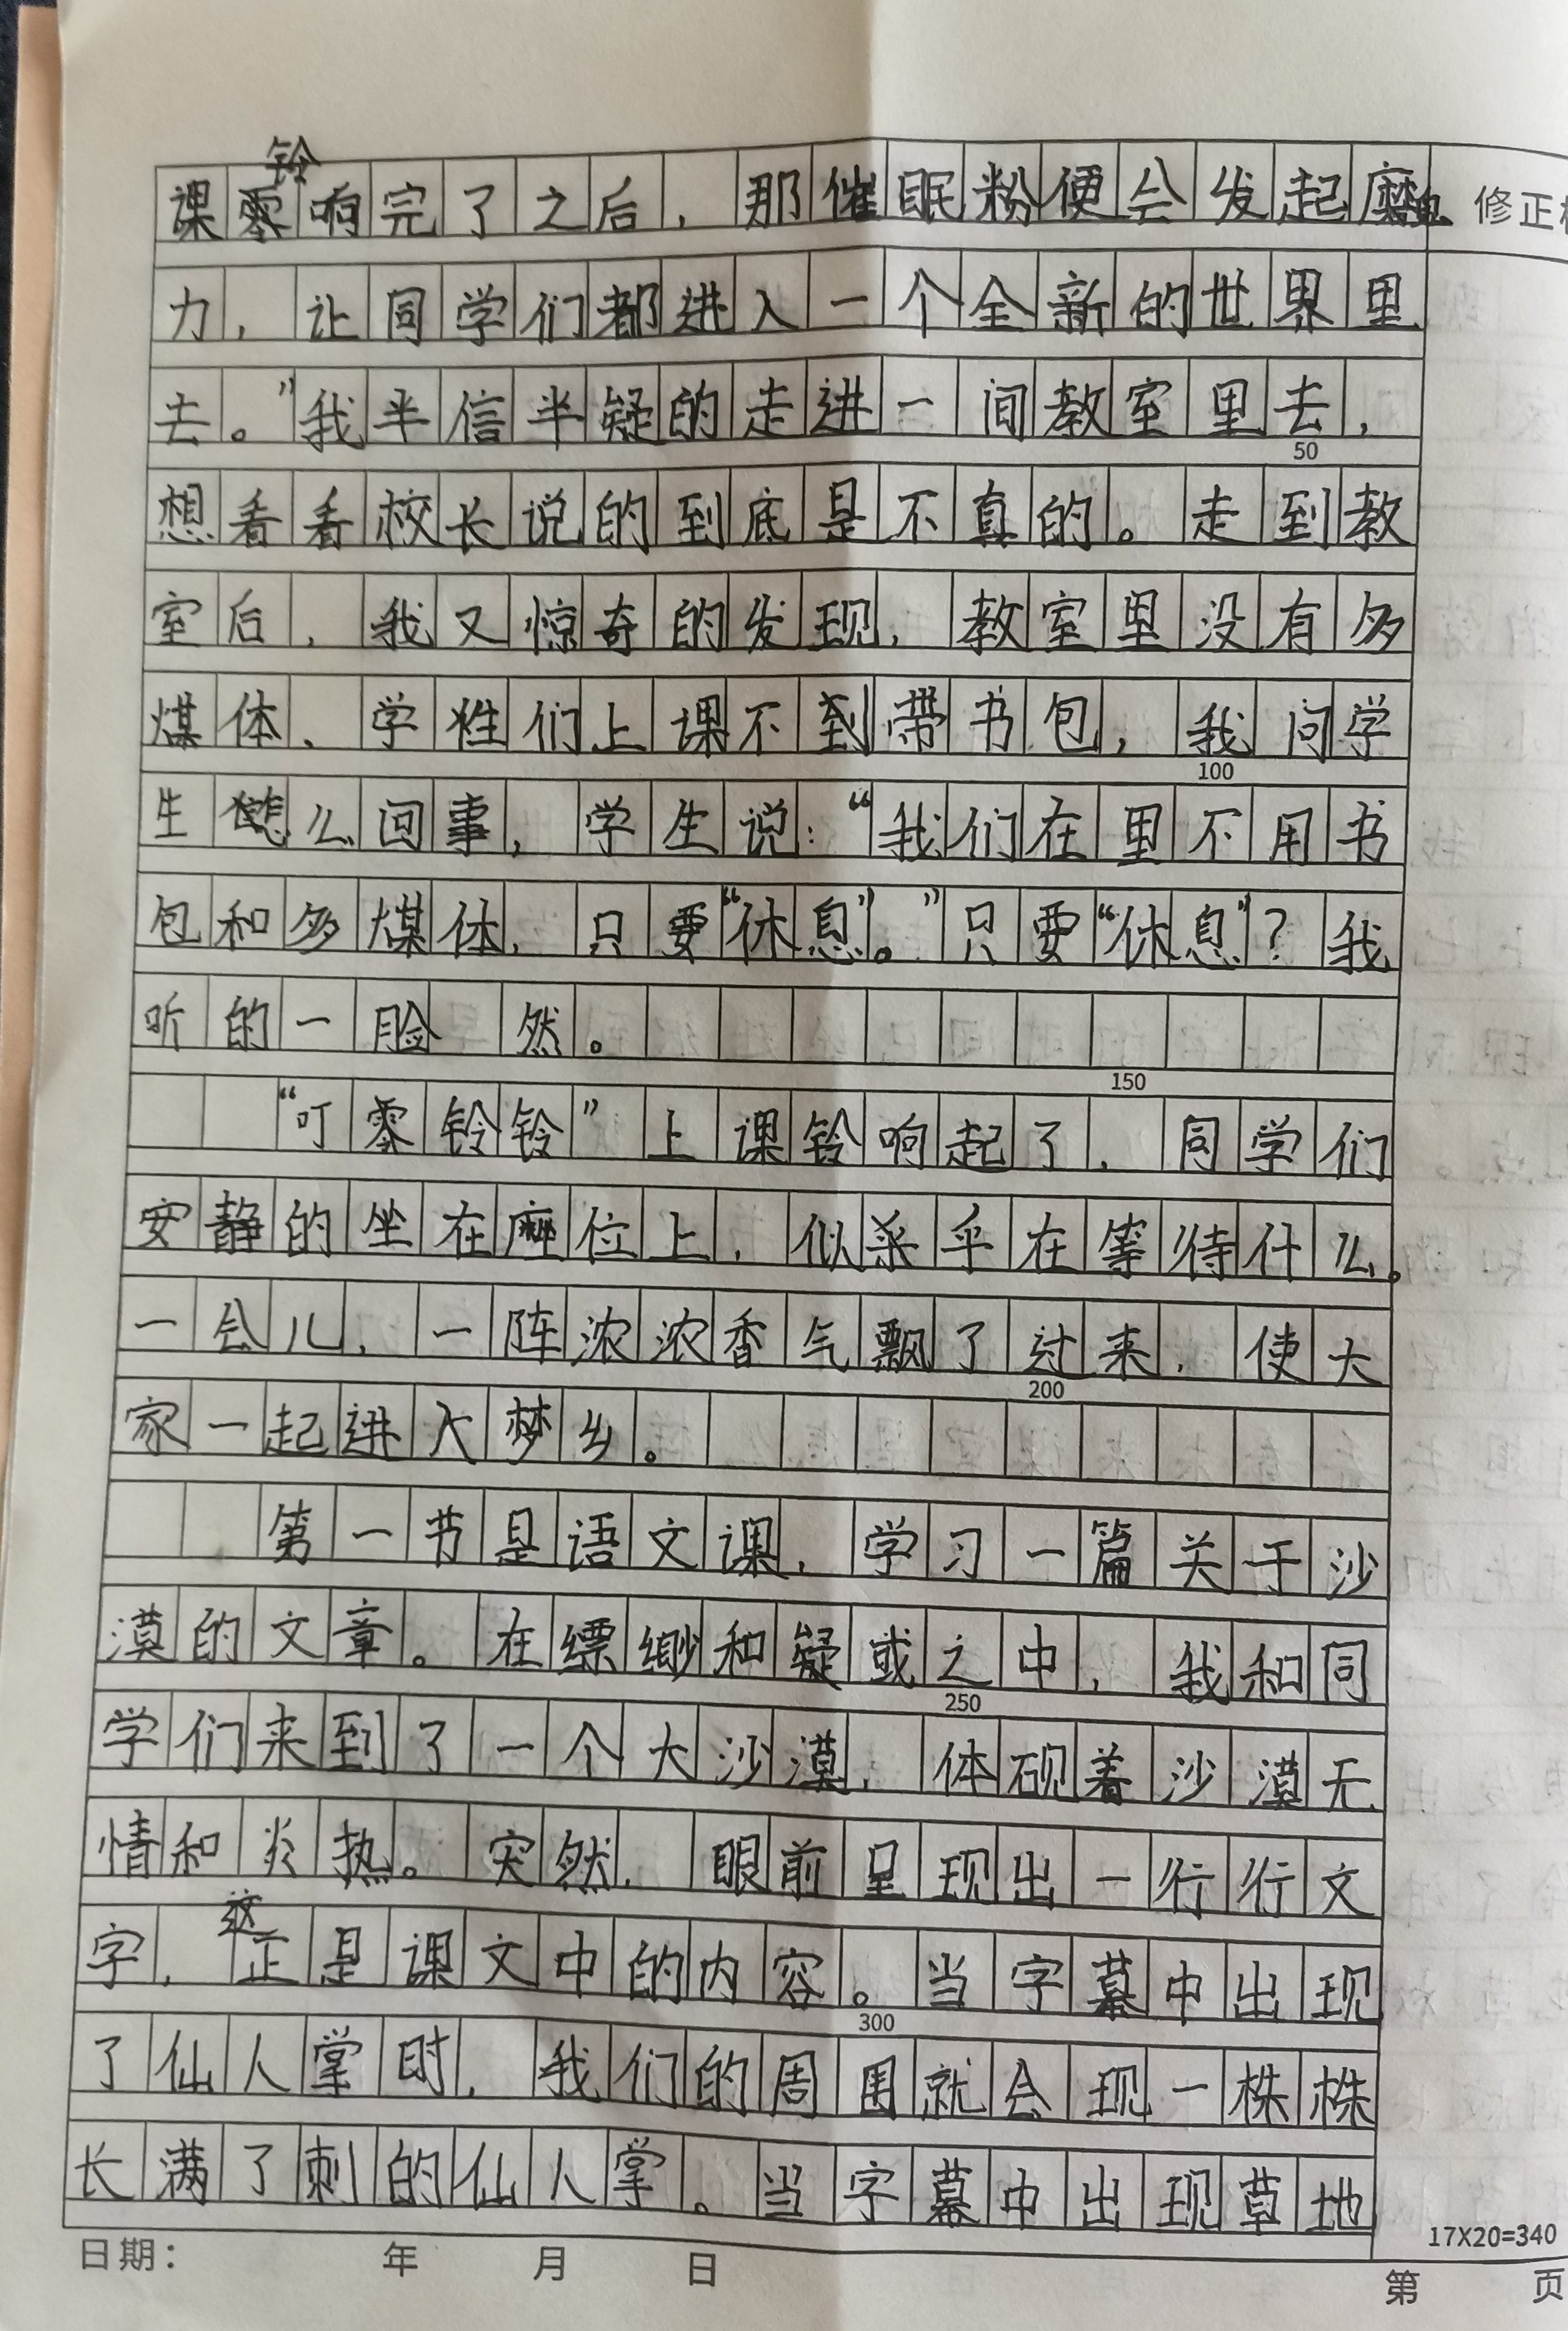 铃
课零响完了之后，那催眠粉便会发起魔 修正
力，让同学们都进入一个全新的世界里
去。”我半信半疑的走进一间教室里去，
50
想看看校长说的到底是不真的。走到教
室后，我又惊奇的发现，教室里没有多
煤体，学牲们上课不到带书包，我问学
100
生怎么回事，学生说：“我们在里不用书
包和多煤体，只要“休息”。”只要“休息”？我
听的一脸 然。
150
“叮零铃铃”上课铃响起了，同学们
安静的坐在座位上，似乎在等待什么。
一会儿，一阵浓浓香气飘了过来，使大
200
家一起进入梦乡。
第一节是语文课，学习一篇关于沙
漠的文章。在缥缈和疑或之中，我和同
250
学们来到了一个大沙漠，体砚着沙漠无
情和炎热。突然，眼前呈现出一行行文
这
字，正是课文中的内容。当字幕中出现
300
了仙人掌时，我们的周围就会现一株株
长满了刺的仙人掌。当字幕中出现草地
17X20=340
日期： 年 月 日
第 页